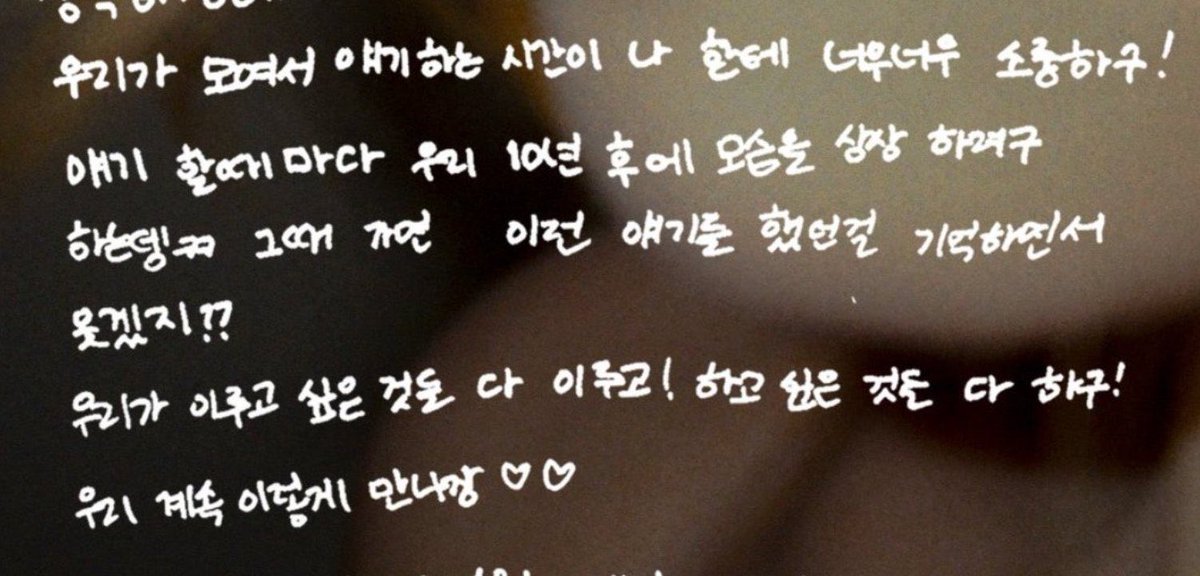 우리가 모여서 얘기하는 시간이 나 한테 너무너무 소중하구!
얘기 할때마다 우리 10년 후에 모습을 상상 하려구
하는뎅ㅋㅋ 그때 가면 이런 얘기를 했었던걸 기억하면서
웃겠지??
우리가 이루고 싶은 것들 다 이루고! 하고 싶은 것들 다 하구!
우리 계속 이렇게 만나장 ♡♡